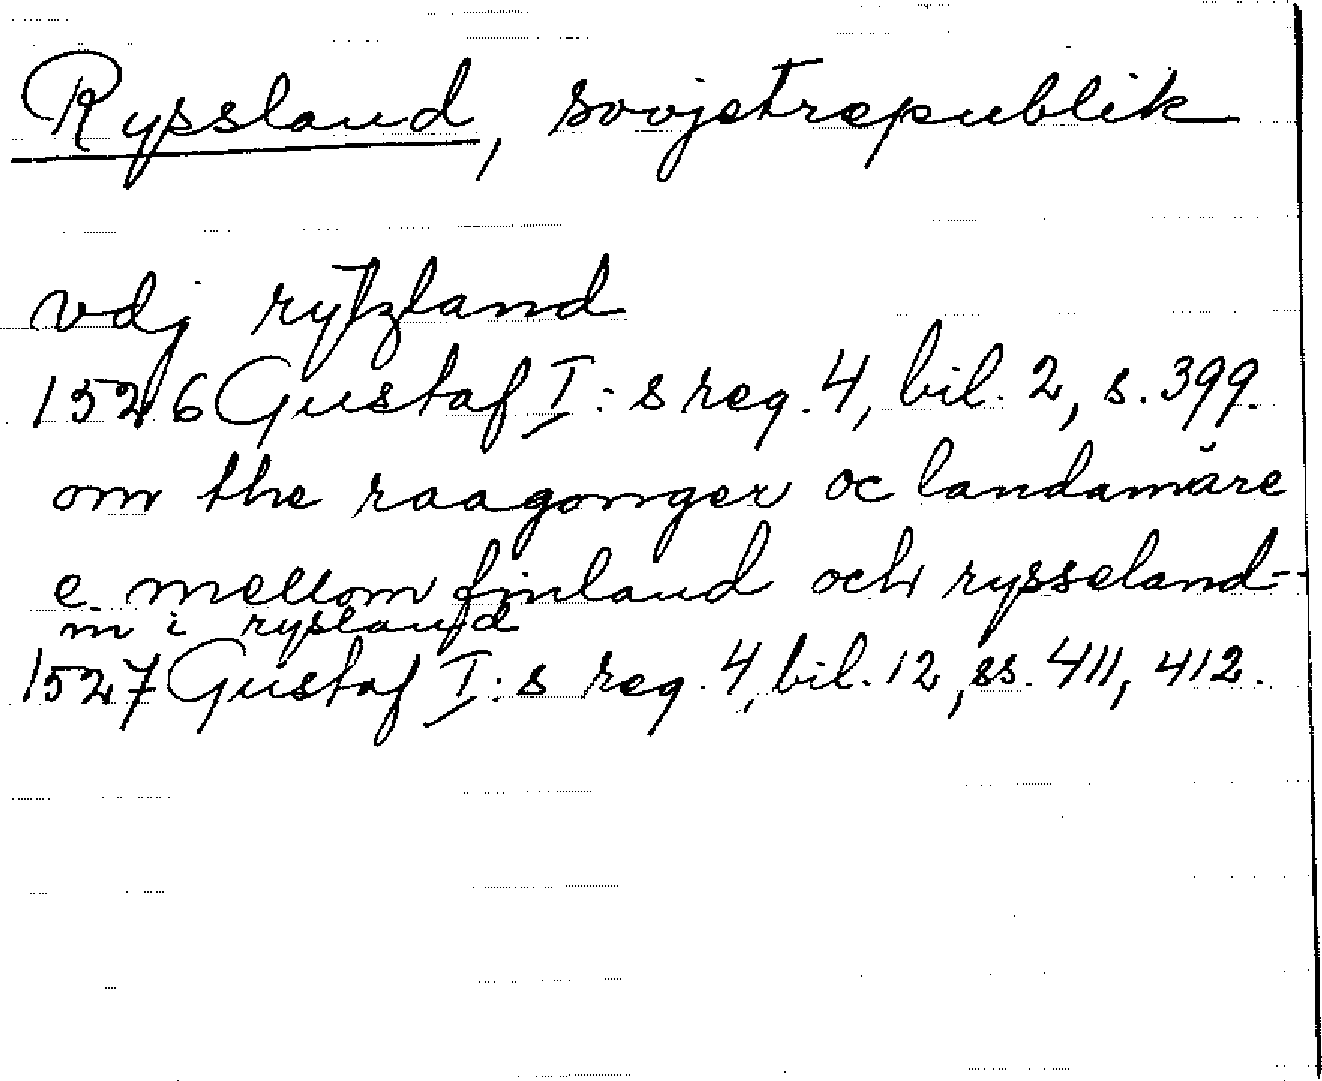 Ryssland, sovjetrepublik
vdj ryszland
1526 Gustaf I:s reg. 4, bil. 2, s. 399.
om the raagonger oc landamäre
e mellom finland och rysseland-
m i rysland
1527 Gustaf I:s reg. 4, bil. 12, ss. 411, 412.